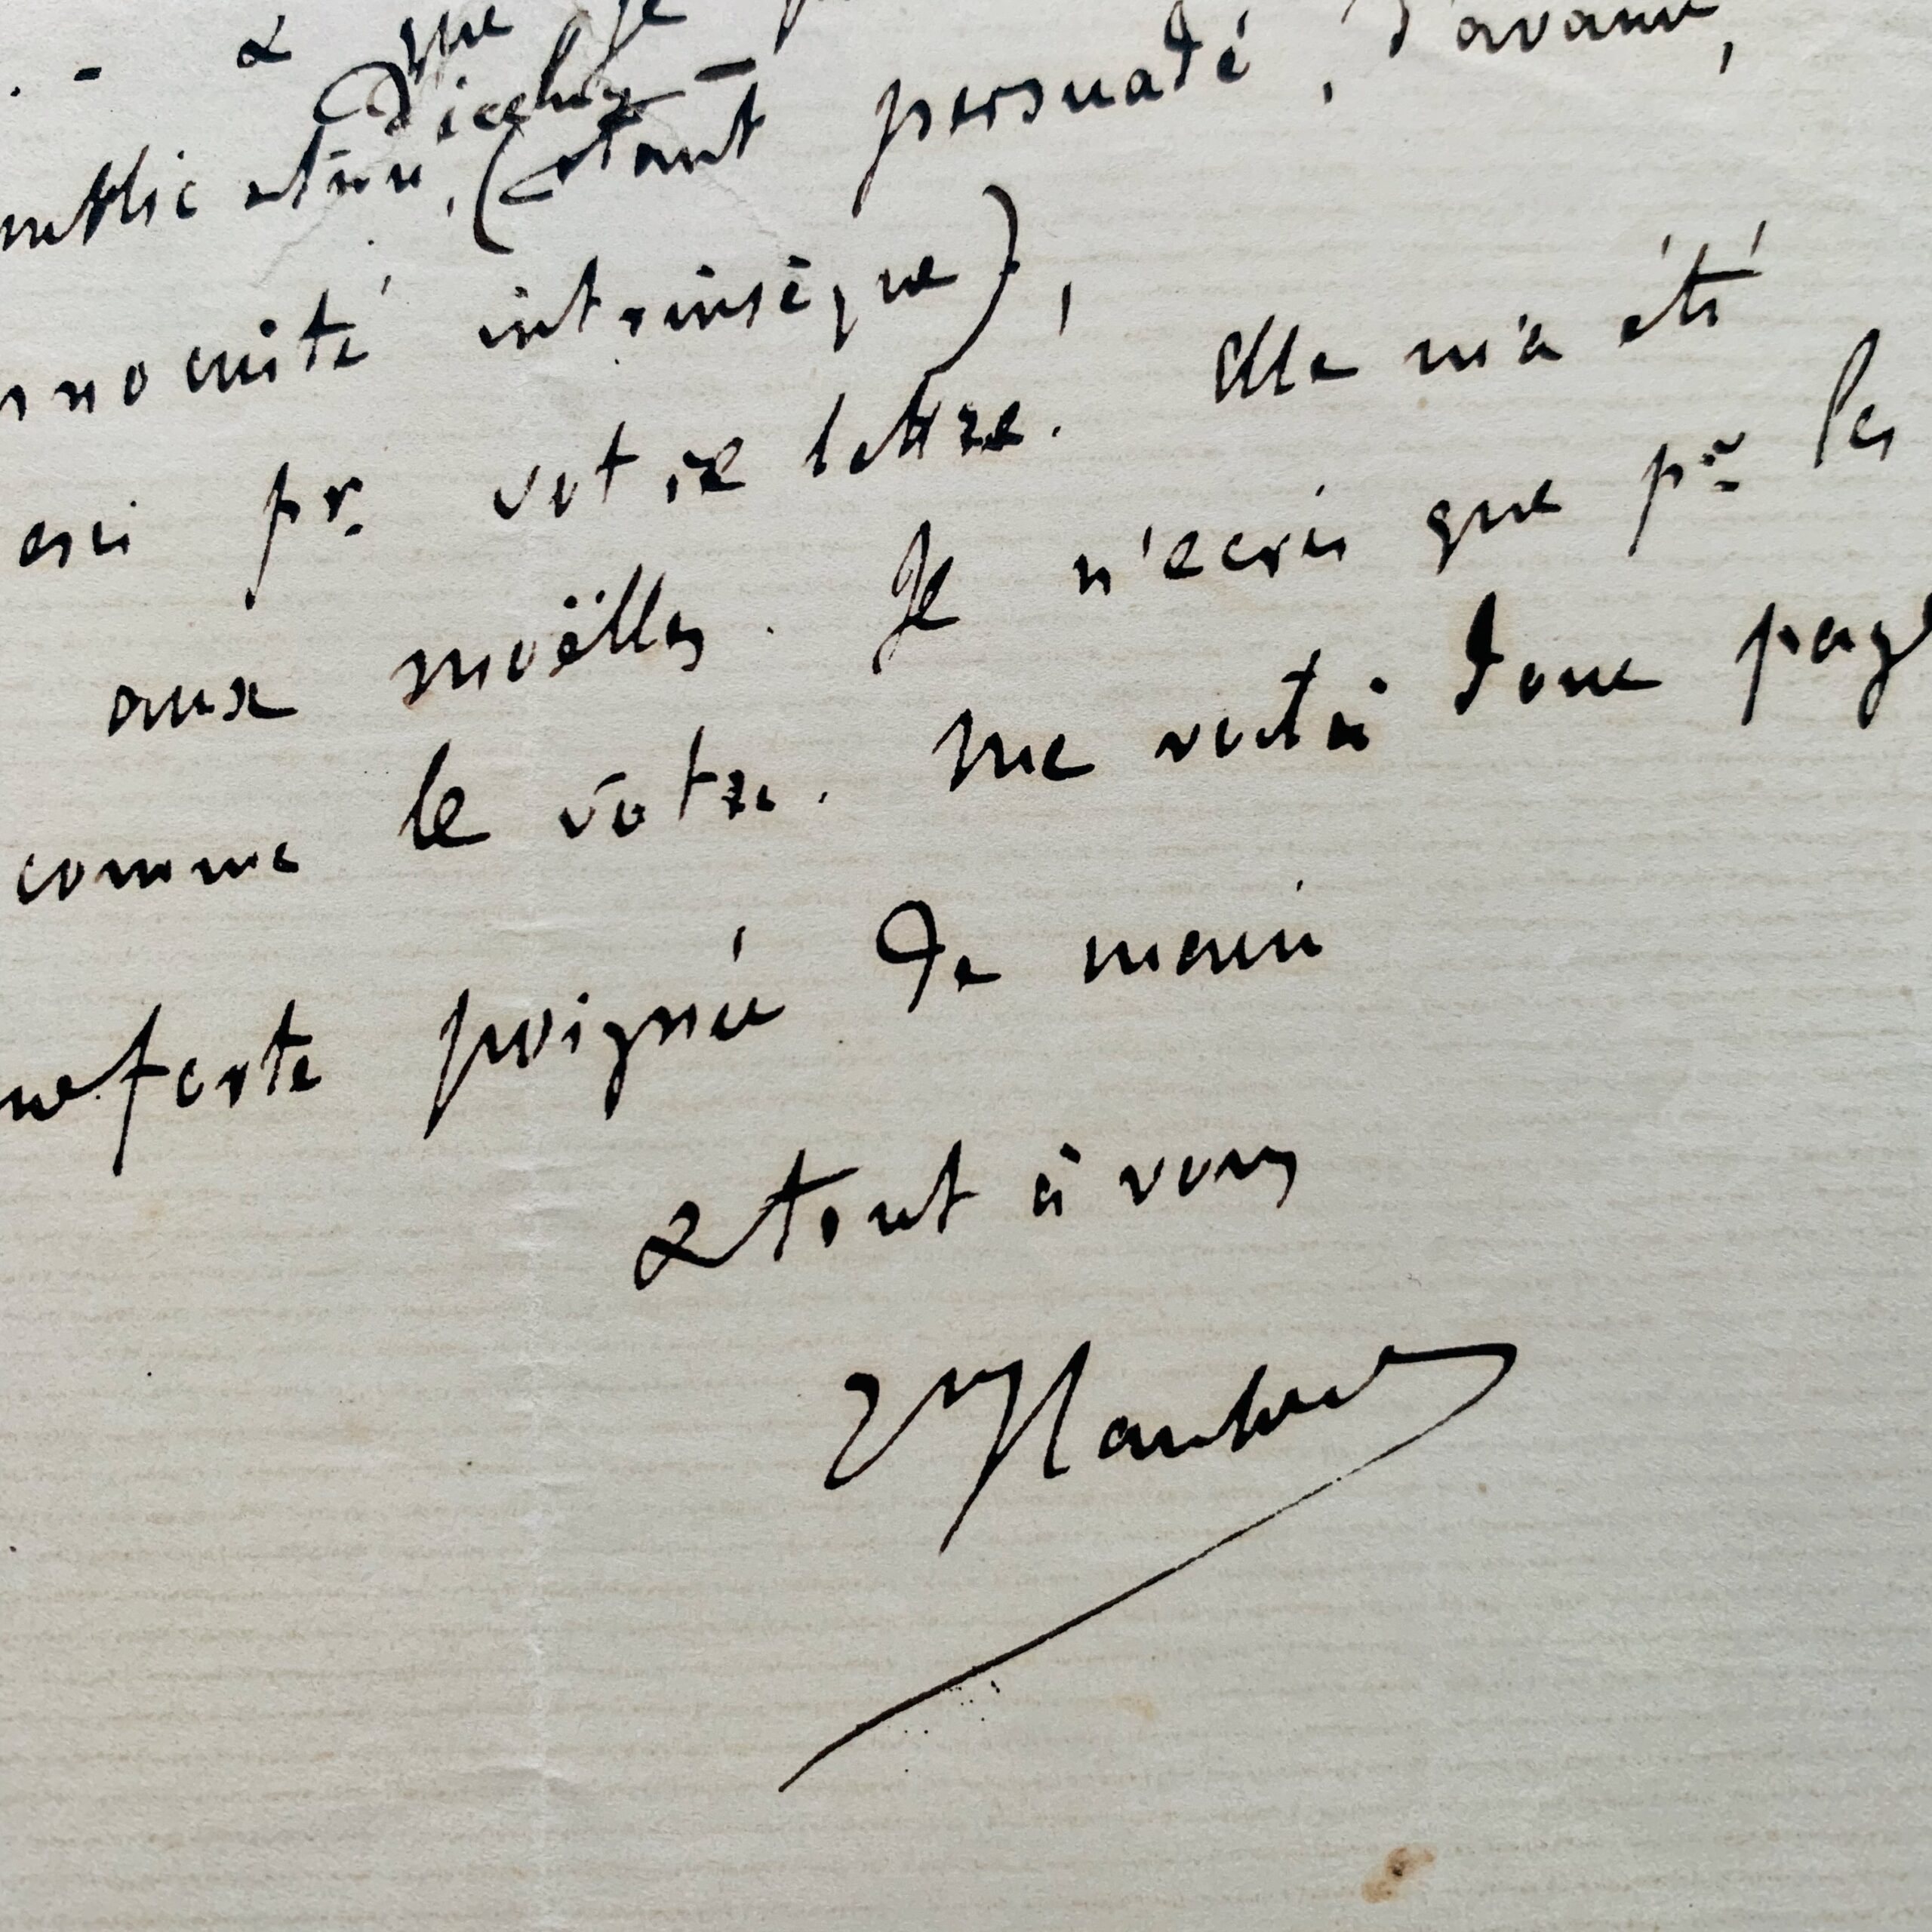 . - & que je
d'icelui -
ublication, (étant persuadé, d'avance,
nnocuité intrinsèque),
erci pr. votre lettre. Elle m'a été
aux moëlles. Je n'ecris que pr les
comme le votre. me voilà donc payé
ne forte poignée de main
& tout à vous
Gve Flaubert